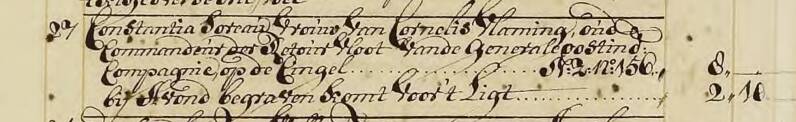 27 Constantia Soreau Vrouw Van Cornelis Vlaming, oud
Commandeur der Retour Vloot Vande Generale oostind:
Compagnie, op de Cingel.......... N:2:N:o156., 8,,
bij Avond begraven komt Voor't Ligt.......... 2,,10